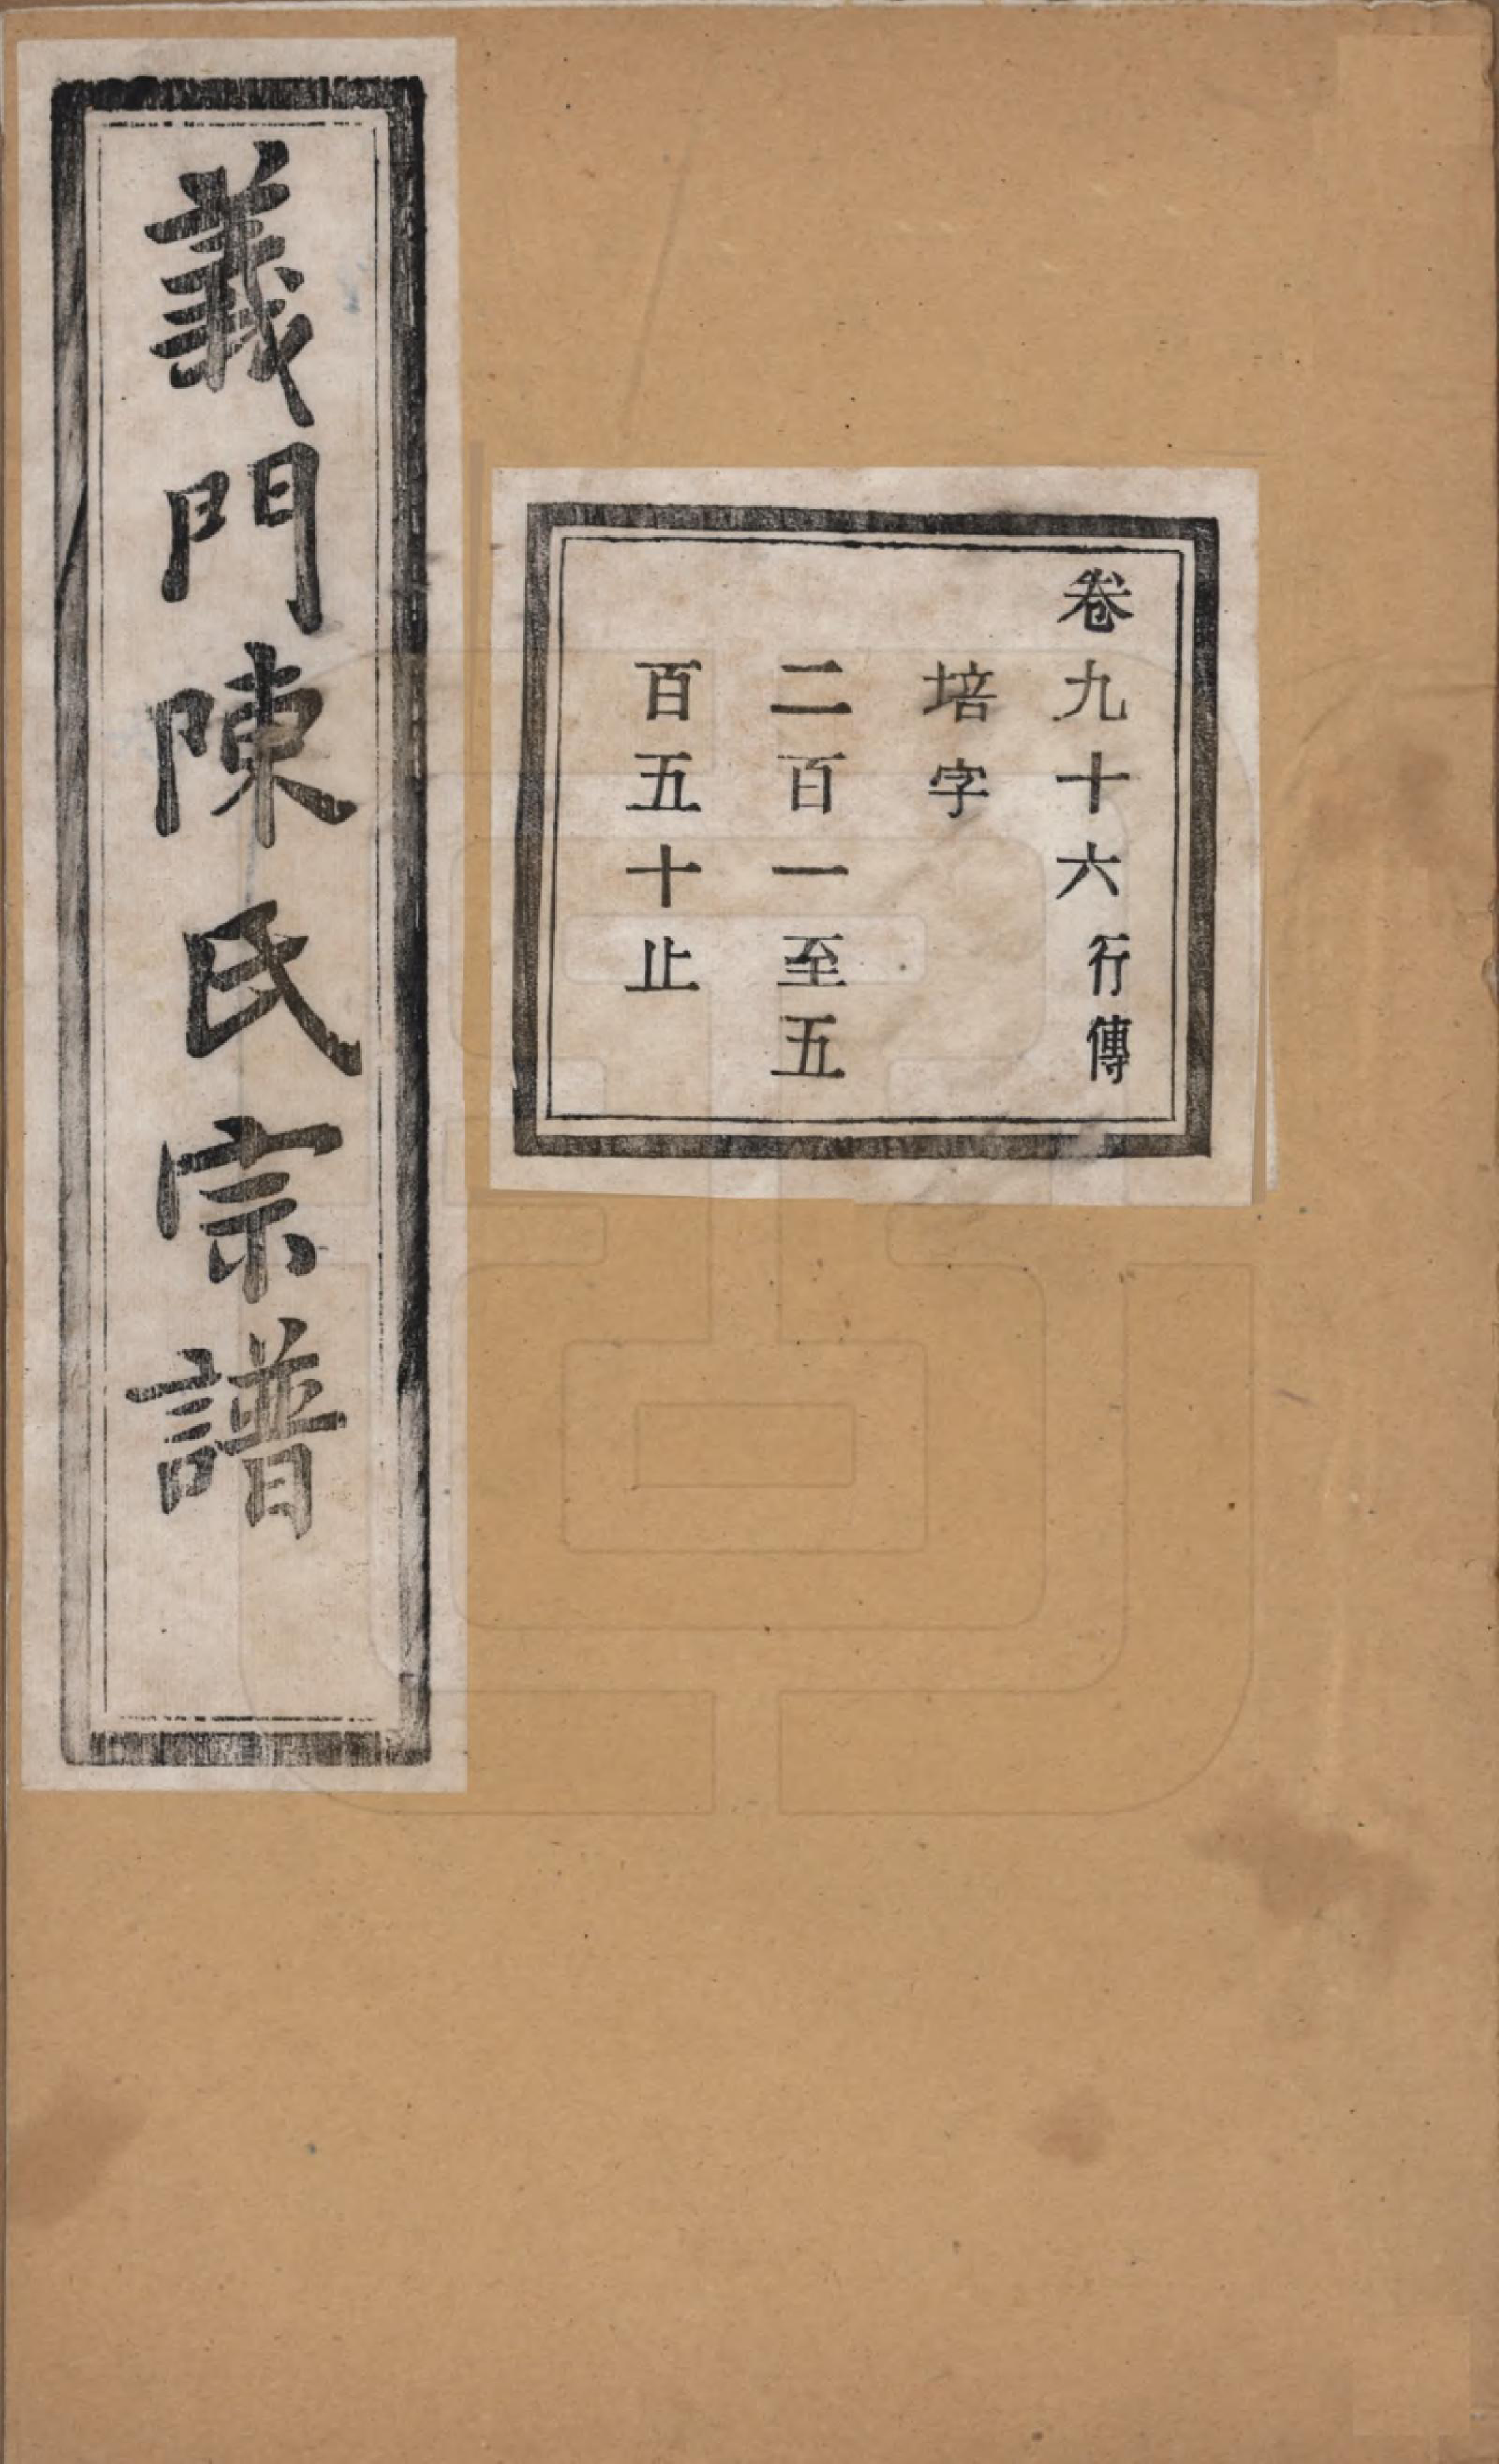 卷九十六行傳
培字
二百一至五
百五十止
義門陳氏宗譜